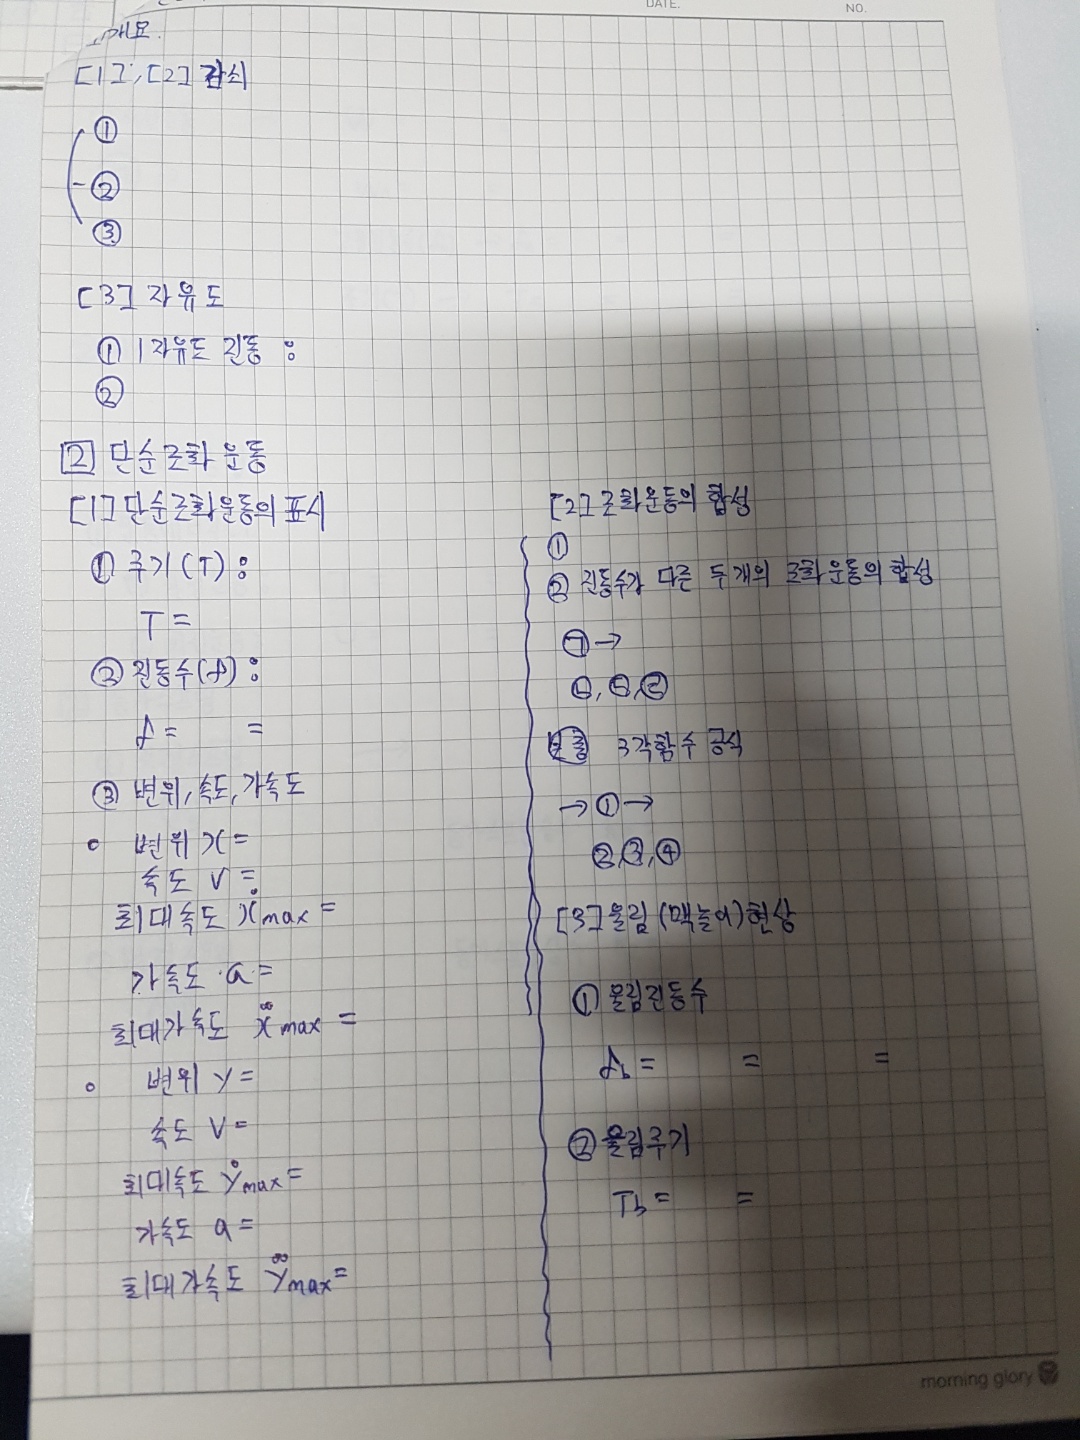 DATE. NO.
개요.
[1], [2] 감쇠
①
②
③
[3] 자유도
① 1자유도 진동 :
②
[2] 단순조화 운동
[1] 단순조화운동의 표시
① 주기(T) :
T =
② 진동수(f) :
f = =
③ 변위, 속도, 가속도
변위 x =
속도 V =
최대속도 ẋmax =
가속도 a =
최대가속도 ẍmax =
변위 y =
속도 V =
최대속도 ẏmax =
가속도 a =
최대가속도 ÿmax =
[2] 조화운동의 합성
①
② 진동수가 다른 두개의 조화운동의 합성
㉠ →
㉡, ㉢, ㉣
보충 3각함수 공식
→ ① →
②, ③, ④
[3] 울림(맥놀이)현상
① 울림진동수
fb = = =
② 울림주기
Tb = =
morning glory